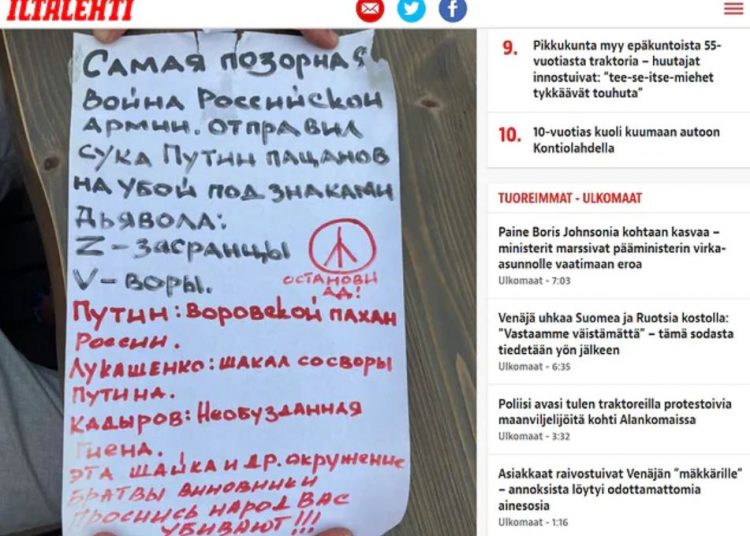 ILTALEHTI
Самая позорная
война Российской
армии. Отправил
сука Путин пацанов
на убой под знаками
дьявола:
Z – засранцы
V – воры.
останови
ад!
Путин: воровской пахан
России.
Лукашенко: шакал со своры
Путина.
Кадыров: Необузданная
Гиена.
Эта шайка и др. окружение
братвы виновники
Проснись народ вас
убивают!!!
9. Pikkukunta myy epäkuntoista 55-
vuotiasta traktoria – huutajat
innostuivat: "tee-se-itse-miehet
tykkäävät touhuta"
10. 10-vuotias kuoli kuumaan autoon
Kontiolahdella
TUOREIMMAT - ULKOMAAT
Paine Boris Johnsonia kohtaan kasvaa –
ministerit marssivat pääministerin virka-
asunnolle vaatimaan eroa
Ulkomaat - 7:03
Venäjä uhkaa Suomea ja Ruotsia kostolla:
"Vastaamme väistämättä" – tämä sodasta
tiedetään yön jälkeen
Ulkomaat - 6:35
Poliisi avasi tulen traktoreilla protestoivia
maanviljelijöitä kohti Alankomaissa
Ulkomaat - 3:32
Asiakkaat raivostuivat Venäjän "mäkkärille"
– annoksista löytyi odottamattomia
ainesosia
Ulkomaat - 1:16